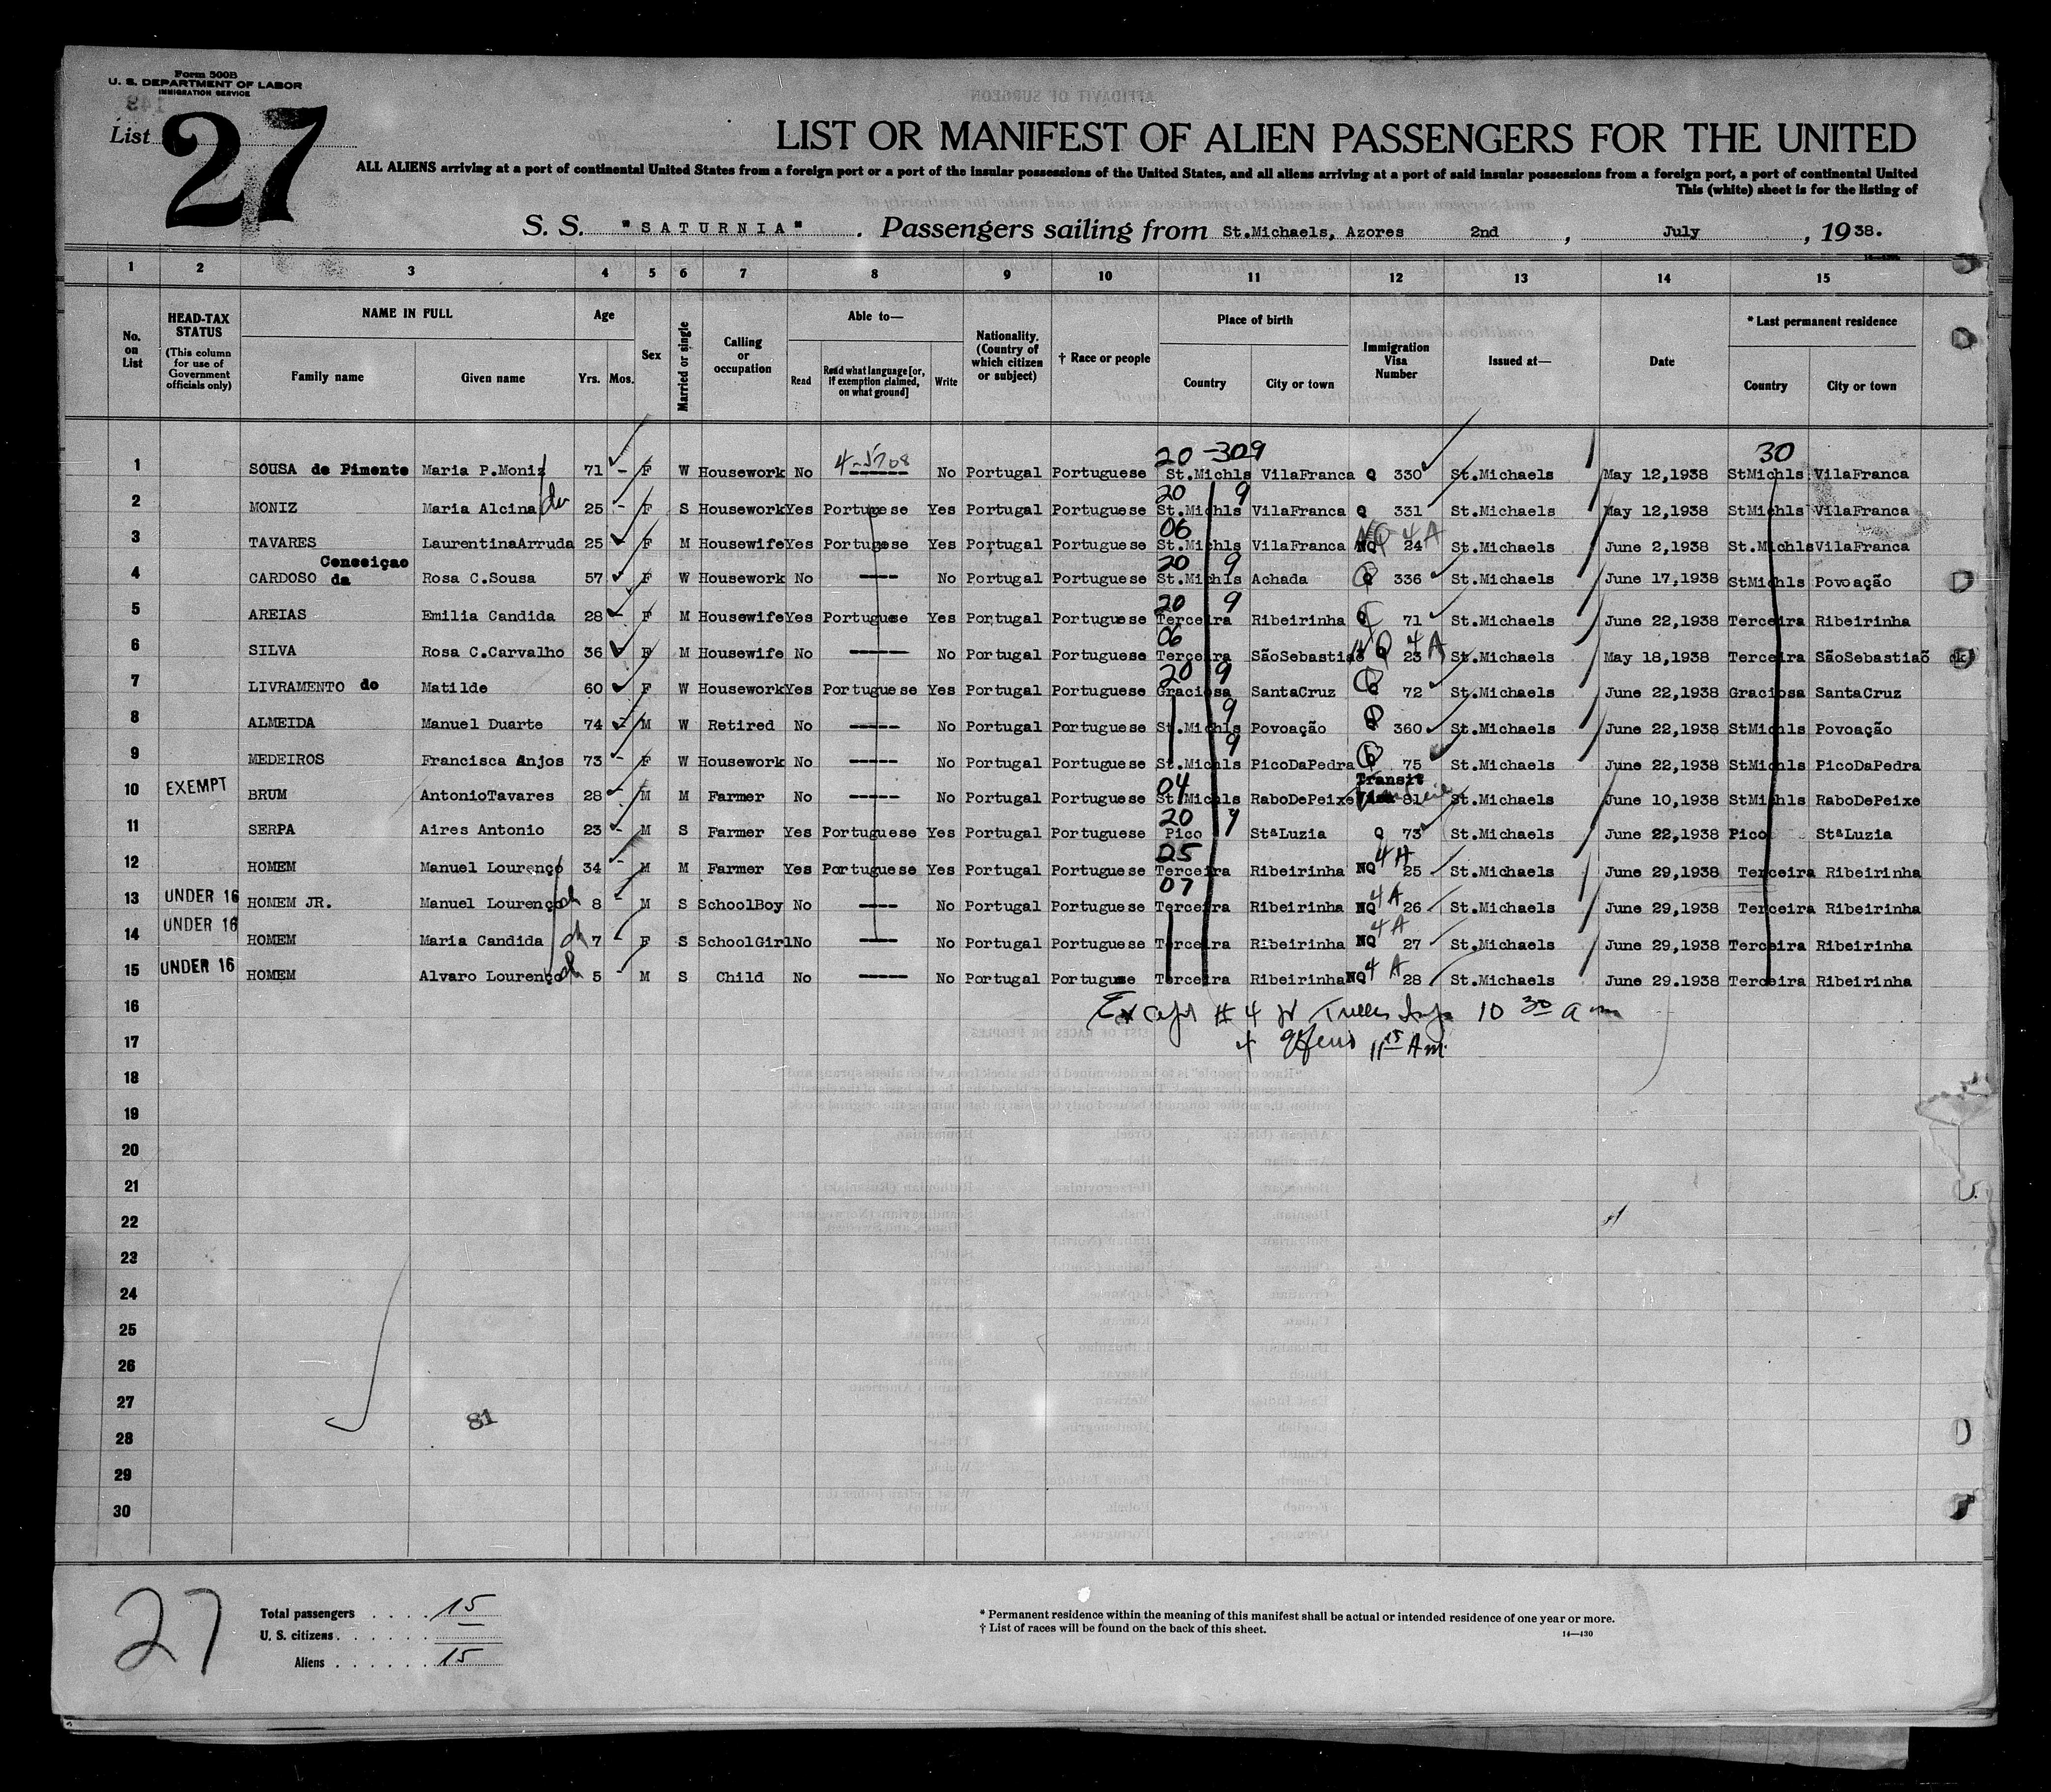 Form 500B
U. S. DEPARTMENT OF LABOR
IMMIGRATION SERVICE
List 27
LIST OR MANIFEST OF ALIEN PASSENGERS FOR THE UNITED
ALL ALIENS arriving at a port of continental United States from a foreign port or a port of the insular possessions of the United States, and all aliens arriving at a port of said insular possessions from a foreign port, a port of continental United
This (white) sheet is for the listing of
S. S. "SATURNIA". Passengers sailing from St.Michaels, Azores 2nd, July, 1938.
1 2 3 4 5 6 7 8 9 10 11 12 13 14 15
No. on List
HEAD-TAX STATUS (This column for use of Government officials only)
NAME IN FULL
Family name Given name
Age
Yrs. Mos.
Sex
Married or single
Calling or occupation
Able to—
Read Read what language [or, if exemption claimed, on what ground] Write
Nationality. (Country of which citizen or subject)
† Race or people
Place of birth
Country City or town
Immigration Visa Number
Issued at—
Date
* Last permanent residence
Country City or town
20 -309 30
1 SOUSA de Pimente Maria P.Moniz 71 - F W Housework No ------ No Portugal Portuguese St.Michls VilaFranca Q 330 St.Michaels May 12,1938 StMichls VilaFranca
20 9
2 MONIZ Maria Alcina 25 - F S Housework Yes Portugese Yes Portugal Portuguese St.Michls VilaFranca Q 331 St.Michaels May 12,1938 StMichls VilaFranca
06 NQ 4A
3 TAVARES LaurentinaArruda 25 - F M Housewife Yes Portugese Yes Portugal Portuguese St.Michls VilaFranca NQ 24 St.Michaels June 2,1938 St.Michls VilaFranca
20 9
4 CARDOSO Conseiçao da Rosa C.Sousa 57 F W Housework No ---- No Portugal Portuguese St.Michls Achada Q 336 St.Michaels June 17,1938 StMichls Povoação
20 9
5 AREIAS Emilia Candida 28 - F M Housewife Yes Portuguese Yes Portugal Portuguese Terceira Ribeirinha Q 71 St.Michaels June 22,1938 Terceira Ribeirinha
06 NQ 4A
6 SILVA Rosa C.Carvalho 36 F M Housewife No ------ No Portugal Portuguese Terceira SãoSebastiaõ 23 St.Michaels May 18,1938 Terceira SãoSebastiaõ ok
20 9
7 LIVRAMENTO do Matilde 60 F W Housework Yes Portuguese Yes Portugal Portuguese Graciosa SantaCruz 72 St.Michaels June 22,1938 Graciosa SantaCruz
9
8 ALMEIDA Manuel Duarte 74 - M W Retired No ----- No Portugal Portuguese St.Michls Povoação Q 360 St.Michaels June 22,1938 StMichls Povoação
9
9 MEDEIROS Francisca Anjos 73 - F W Housework No ----- No Portugal Portuguese St.Michls PicoDaPedra 75 St.Michaels June 22,1938 StMichls PicoDaPedra
04 Transit
10 EXEMPT BRUM AntonioTavares 28 - M M Farmer No ----- No Portugal Portuguese St.Michls RaboDePeixe Visa 81 St.Michaels June 10,1938 StMichls RaboDePeixe
20 9
11 SERPA Aires Antonio 23 - M S Farmer Yes Portuguese Yes Portugal Portuguese Pico StªLuzia Q 73 St.Michaels June 22,1938 Pico StªLuzia
05 4A
12 HOMEM Manuel Lourenço 34 - M M Farmer Yes Portuguese Yes Portugal Portuguese Terceira Ribeirinha NQ 25 St.Michaels June 29,1938 Terceira Ribeirinha
07 4A
13 UNDER 16 HOMEM JR. Manuel Lourenço ch 8 - M S SchoolBoy No ---- No Portugal Portuguese Terceira Ribeirinha NQ 26 St.Michaels June 29,1938 Terceira Ribeirinha
4A
14 UNDER 16 HOMEM Maria Candida ch 7 F S SchoolGirl No ---- No Portugal Portuguese Terceira Ribeirinha NQ 27 St.Michaels June 29,1938 Terceira Ribeirinha
4A
15 UNDER 16 HOMEM Alvaro Lourenço ch 5 - M S Child No ----- No Portugal Portuguese Terceira Ribeirinha NQ 28 St.Michaels June 29.1938 Terceira Ribeirinha
16 Except #4 10 30 a m
17 4 11 15 A m.
18
19
20
21
22
23
24
25
26
27
81
28
29
30
27
Total passengers . . . . 15
U. S. citizens . . . . . . —
Aliens . . . . . . 15
* Permanent residence within the meaning of this manifest shall be actual or intended residence of one year or more.
† List of races will be found on the back of this sheet.
14—430